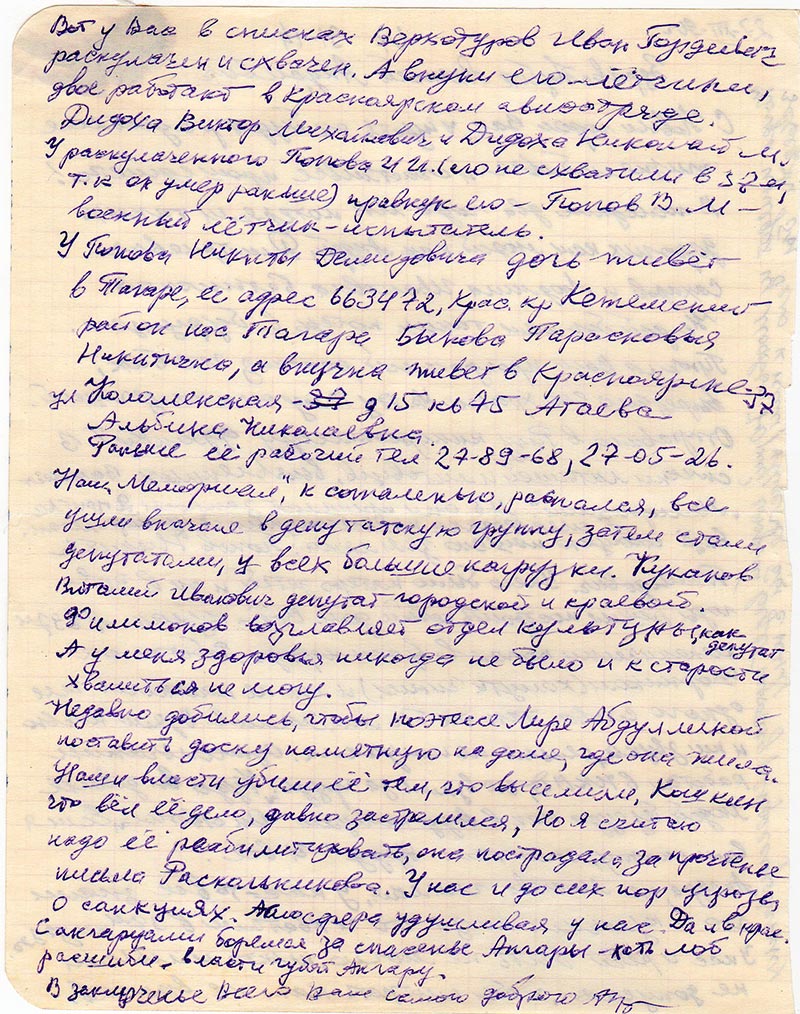 Вот у Вас в списках Верхотуров Иван Гордеевич
раскулачен и схвачен. А внуки его – лётчики,
двое работают в Красноярском авиаотряде.
Дидоха Виктор Михайлович и Дидоха Николай М.
У раскулаченного Попова И И. (его не схватили в 37м,
т.к он умер раньше) правнук его – Попов В. М –
военный лётчик-испытатель.
У Попова Никиты Демидовича дочь живёт
в Тагаре, её адрес 663472, Крас. кр Кежемский
район пос Тагара Быкова Парасковья
Никитична, а внучка живет в Красноярске-37
ул Коломенская - д 15 кв 75 Атаева
Альбина Николаевна.
Раньше её рабочий тел 27-89-68, 27-05-26.
Наш „Мемориал", к сожаленью, распался, все
ушли вначале в депутатскую группу, затем стали
депутатами, у всех большие нагрузки.
Виталий Иванович депутат городской и краевой.
Филимонов возглавляет отдел культуры, как
депутат
А у меня здоровья никогда не было и к старости
хвалиться не могу.
Недавно добились, чтобы поэтессе Лире Абдуллиной
поставить доску памятную на доме, где она жила.
Наши власти убили её тем, что выселили, Кашкин
что вёл её дело, давно застрелился, Но я считаю
надо её реабилитировать, она пострадала за прочтенье
письма Раскольникова. У нас и до сих пор угрозы
о санкциях. Атмосфера удушливая у нас. Да и в крас.
С ангарцами боремся за спасенье Ангары – хоть лоб
расшиби – власти губят Ангару.
В заключенье Всего Вам самого доброго